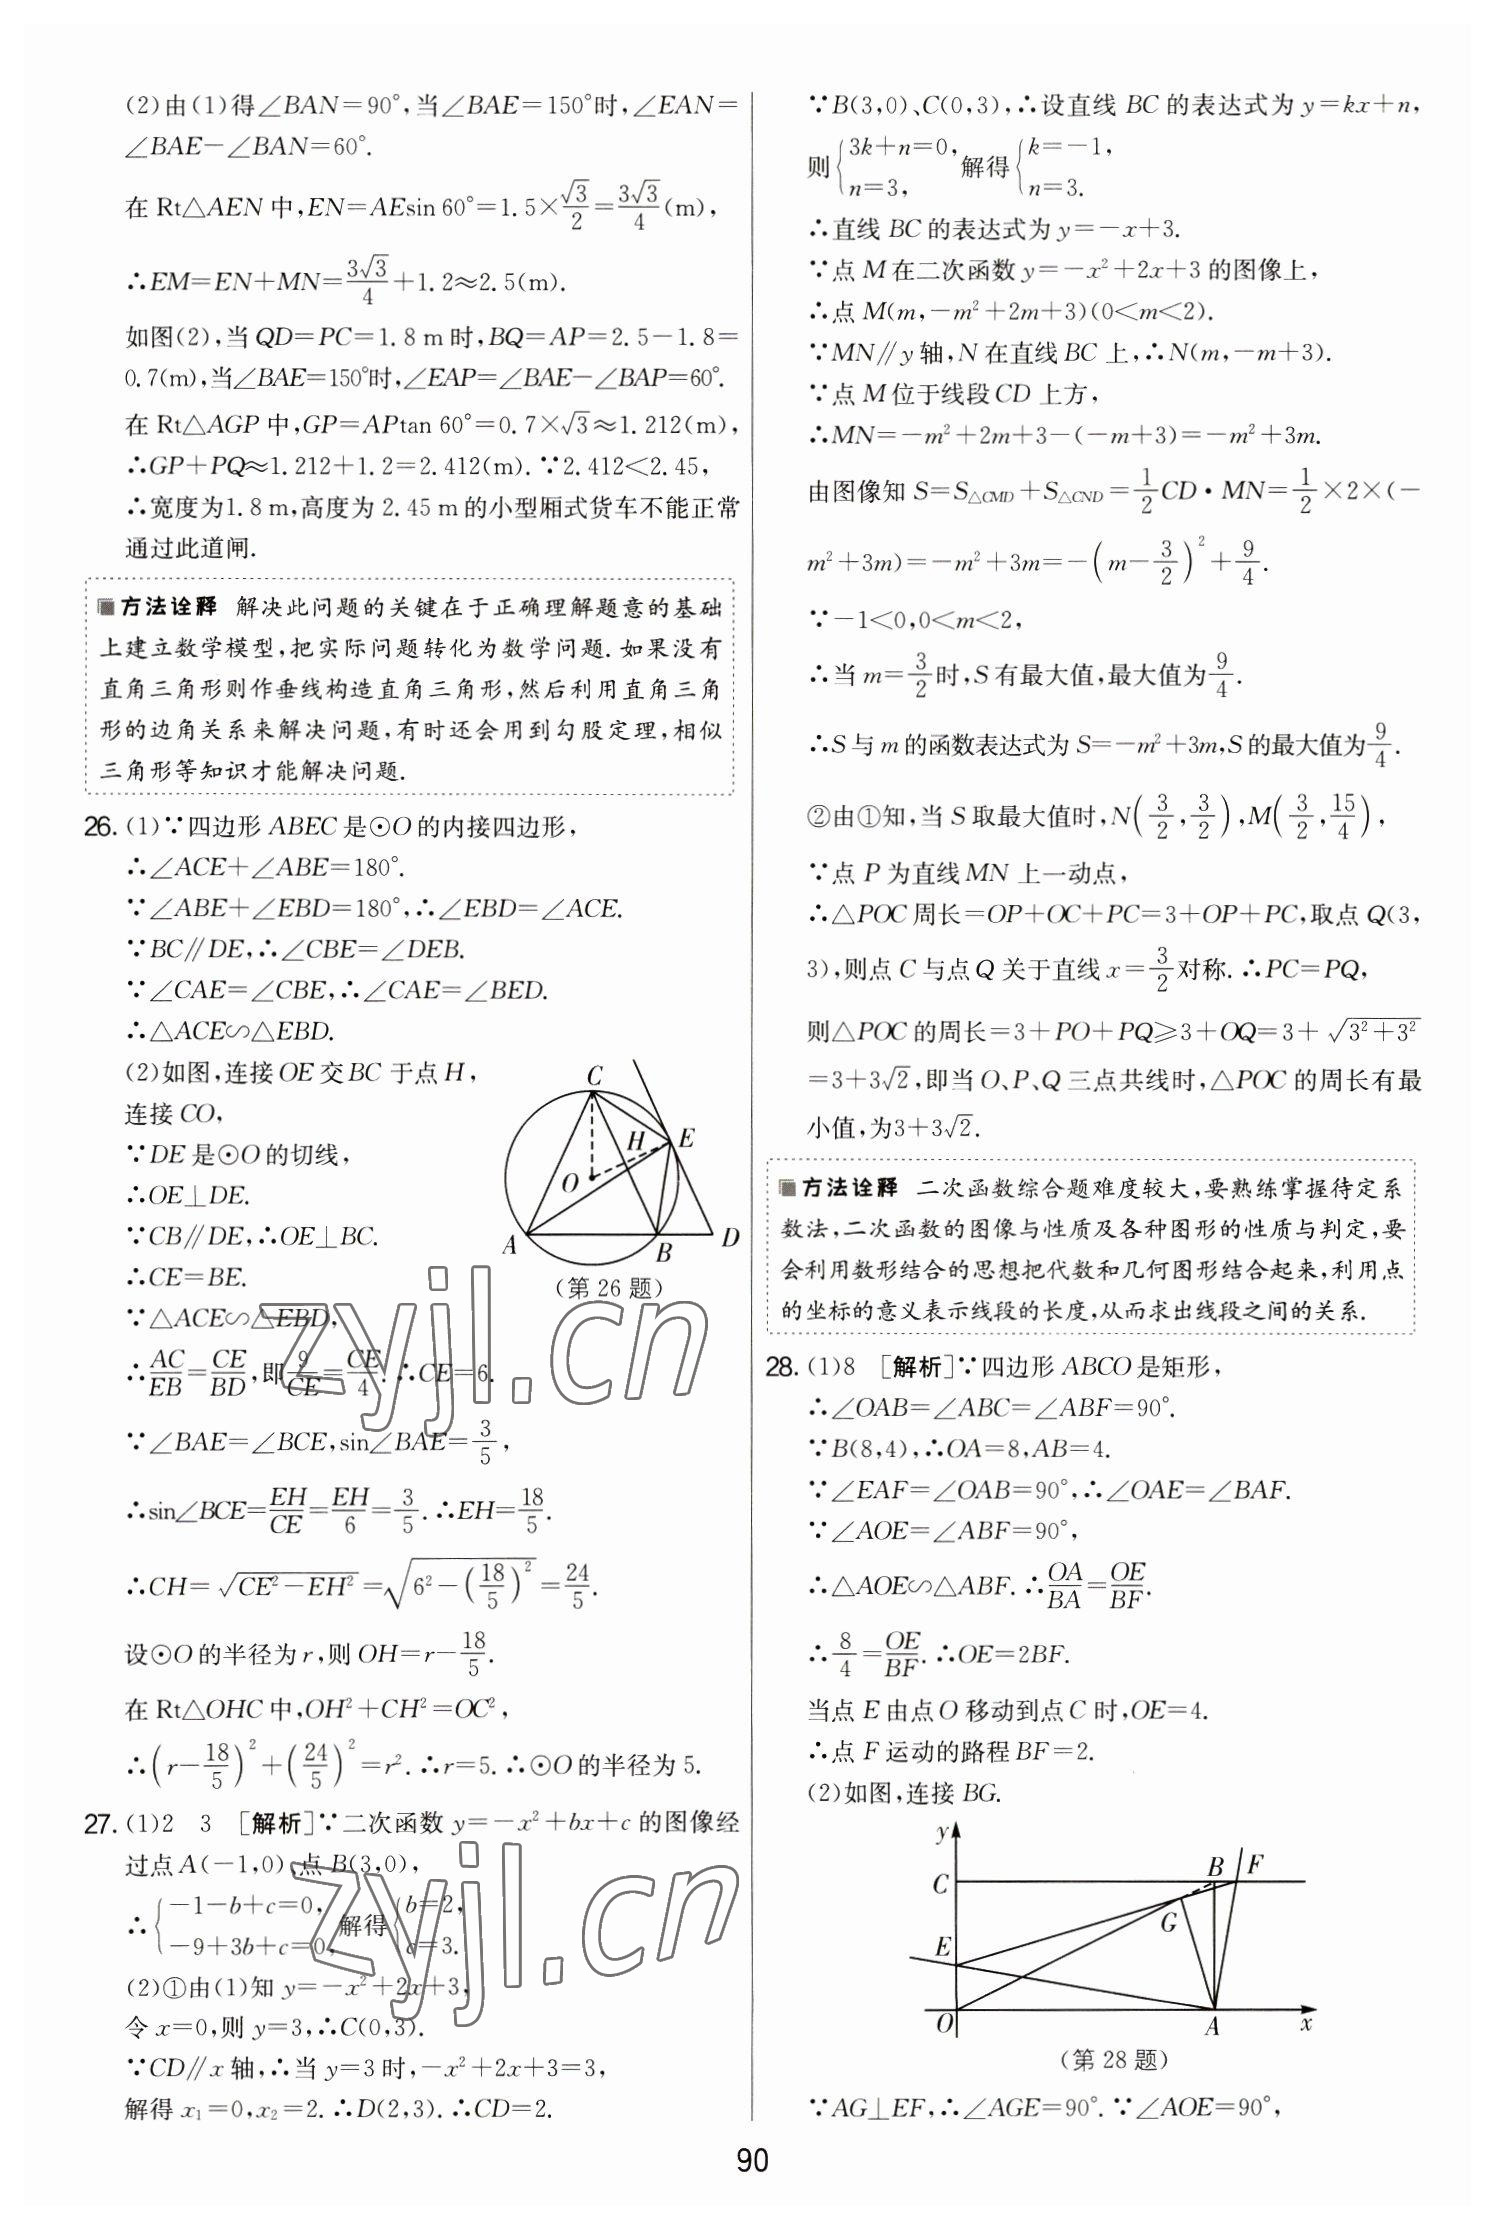 (2)由(1)得∠BAN=90°,当∠BAE=150°时,∠EAN=
∠BAE-∠BAN=60°.
在 Rt△AEN 中,EN=AEsin 60°=1.5×√3/2=3√3/4(m),
∴EM=EN+MN=3√3/4+1.2≈2.5(m).
如图(2),当 QD=PC=1.8 m 时,BQ=AP=2.5-1.8=
0.7(m),当∠BAE=150°时,∠EAP=∠BAE-∠BAP=60°.
在 Rt△AGP 中,GP=APtan 60°=0.7×√3≈1.212(m),
∴GP+PQ≈1.212+1.2=2.412(m).∵2.412<2.45,
∴宽度为1.8 m,高度为 2.45 m 的小型厢式货车不能正常
通过此道闸.
方法诠释 解决此问题的关键在于正确理解题意的基础
上建立数学模型,把实际问题转化为数学问题.如果没有
直角三角形则作垂线构造直角三角形,然后利用直角三角
形的边角关系来解决问题,有时还会用到勾股定理,相似
三角形等知识才能解决问题.
26.(1)∵四边形 ABEC 是⊙O 的内接四边形,
∴∠ACE+∠ABE=180°.
∵∠ABE+∠EBD=180°,∴∠EBD=∠ACE.
∵BC∥DE,∴∠CBE=∠DEB.
∵∠CAE=∠CBE,∴∠CAE=∠BED.
∴△ACE∽△EBD.
(2)如图,连接 OE 交 BC 于点 H,
连接 CO,
∵DE 是⊙O 的切线,
∴OE⊥DE.
∵CB∥DE,∴OE⊥BC.
∴CE=BE.
∵△ACE∽△EBD,
∴AC/EB=CE/BD,即9/CE=CE/4.∴CE=6.
∵∠BAE=∠BCE,sin∠BAE=3/5,
∴sin∠BCE=EH/CE=EH/6=3/5.∴EH=18/5.
∴CH=√(CE²-EH²)=√(6²-(18/5)²)=24/5.
设⊙O 的半径为 r,则 OH=r-18/5.
在 Rt△OHC 中,OH²+CH²=OC²,
∴(r-18/5)²+(24/5)²=r².∴r=5.∴⊙O 的半径为 5.
C
H
E
O
A
B
D
(第 26 题)
27.(1)2 3 [解析]∵二次函数 y=-x²+bx+c 的图像经
过点 A(-1,0),点 B(3,0),
∴{-1-b+c=0, -9+3b+c=0, 解得{b=2, c=3.
(2)①由(1)知 y=-x²+2x+3,
令 x=0,则 y=3,∴C(0,3).
∵CD∥x 轴,∴当 y=3 时,-x²+2x+3=3,
解得 x₁=0,x₂=2.∴D(2,3).∴CD=2.
∵B(3,0)、C(0,3),∴设直线 BC 的表达式为 y=kx+n,
则{3k+n=0, n=3, 解得{k=-1, n=3.
∴直线 BC 的表达式为 y=-x+3.
∵点 M 在二次函数 y=-x²+2x+3 的图像上,
∴点 M(m,-m²+2m+3)(0<m<2).
∵MN∥y 轴,N 在直线 BC 上,∴N(m,-m+3).
∵点 M 位于线段 CD 上方,
∴MN=-m²+2m+3-(-m+3)=-m²+3m.
由图像知 S=S△CMD+S△CND=1/2CD·MN=1/2×2×(-
m²+3m)=-m²+3m=-(m-3/2)²+9/4.
∵-1<0,0<m<2,
∴当 m=3/2时,S 有最大值,最大值为9/4.
∴S 与 m 的函数表达式为 S=-m²+3m,S 的最大值为9/4.
②由①知,当 S 取最大值时,N(3/2,3/2),M(3/2,15/4),
∵点 P 为直线 MN 上一动点,
∴△POC 周长=OP+OC+PC=3+OP+PC,取点 Q(3,
3),则点 C 与点 Q 关于直线 x=3/2对称.∴PC=PQ,
则△POC 的周长=3+PO+PQ≥3+OQ=3+√(3²+3²)
=3+3√2,即当 O、P、Q 三点共线时,△POC 的周长有最
小值,为3+3√2.
方法诠释 二次函数综合题难度较大,要熟练掌握待定系
数法,二次函数的图像与性质及各种图形的性质与判定,要
会利用数形结合的思想把代数和几何图形结合起来,利用点
的坐标的意义表示线段的长度,从而求出线段之间的关系.
28.(1)8 [解析]∵四边形 ABCO 是矩形,
∴∠OAB=∠ABC=∠ABF=90°.
∵B(8,4),∴OA=8,AB=4.
∵∠EAF=∠OAB=90°,∴∠OAE=∠BAF.
∵∠AOE=∠ABF=90°,
∴△AOE∽△ABF.∴OA/BA=OE/BF.
∴8/4=OE/BF.∴OE=2BF.
当点 E 由点 O 移动到点 C 时,OE=4.
∴点 F 运动的路程 BF=2.
(2)如图,连接 BG.
y
C
B F
G
E
O
A
x
(第 28 题)
∵AG⊥EF,∴∠AGE=90°.∵∠AOE=90°,
90
zyjl.cn
zyjl.cn